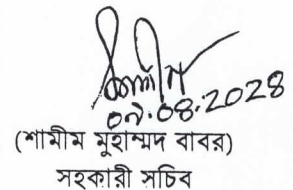 ০৭.০৪.২০২৪
(শামীম মুহাম্মদ বাবর)
সহকারী সচিব